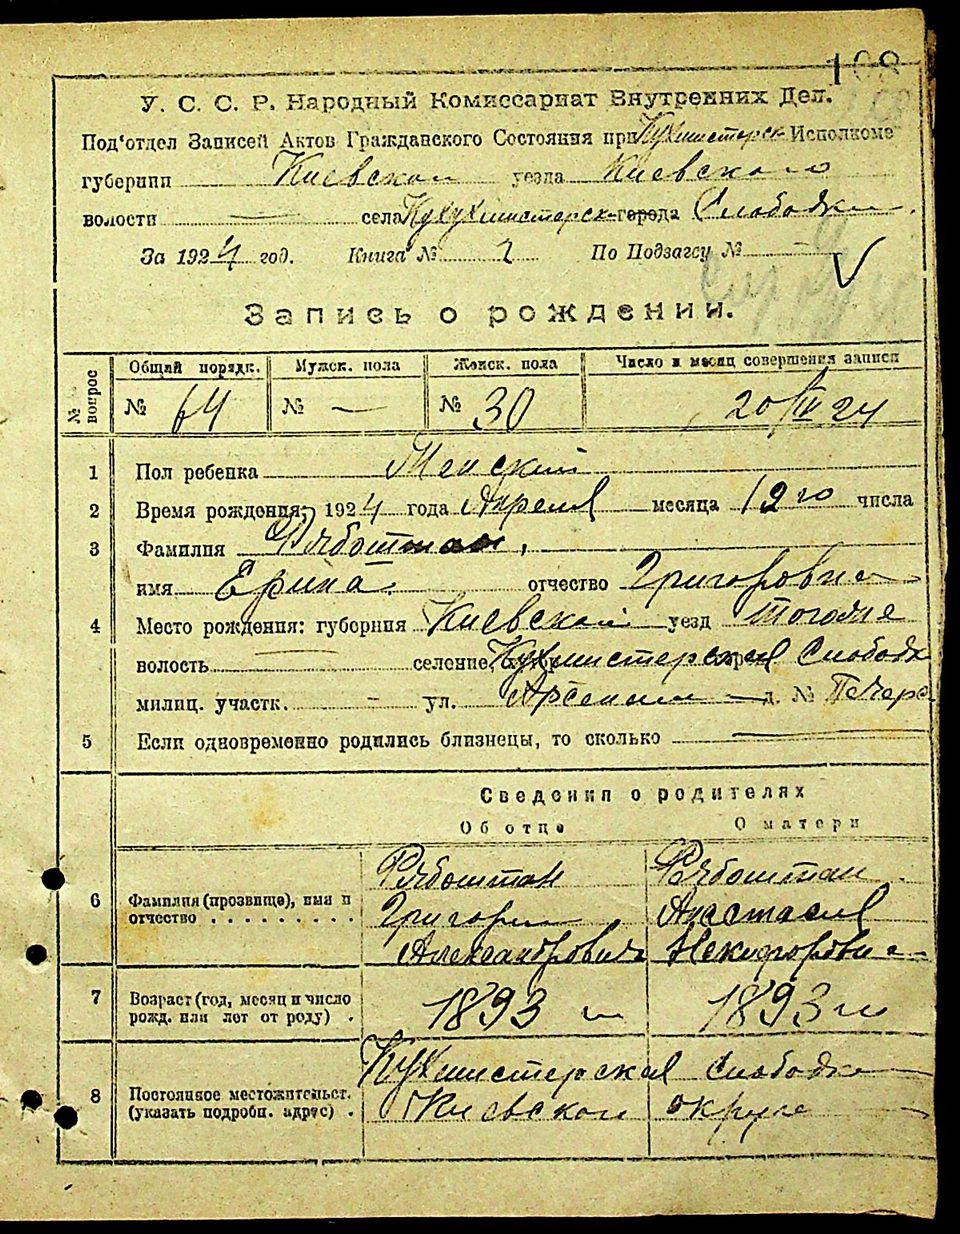 108
У. С. С. Р. Народный Комиссариат Внутренних Дел.
Под‘отдел Записей Актов Гражданского Состояния при Кухмистерск Исполкоме
губернии Киевской уезда Киевского
волости — села Кухмистерск города Слободки.
За 1924 год. Книга № 1 По Подзагсу № —
Запись о рождении.
№ вопрос Общий порядк. Мужск. пола Женск. пола Число и месяц совершения записи
№ 64 № — № 30 20/IV 24
1 Пол ребенка Женский
2 Время рождения: 1924 года Апреля месяца 12го числа
3 Фамилия Рябоштан,
имя Ерина отчество Григоровна
4 Место рождения: губерния Киевской уезд тогоже
волость — селение, Кухмистерская Слободк
милиц. участк. — ул. д. № Печерс
5 Если одновременно родились близнецы, то сколько —
Сведения о родителях
Об отце О матери
6 Фамилия (прозвище), имя и отчество . . . . . . . . .
Рябоштан Рябоштан
Григори Анастасия
Александровичъ Некифоровна
7 Возраст (год, месяц и число рожд. или лет от роду) .
1893 г 1893 г
8 Постоянное местожительст. (указать подробн. адрес) .
Кухмистерская Слободка
Киевской округе